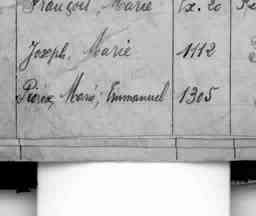 François, Marie Ex. 20
Joseph, Marie 1112
Marie, Emmanuel 1305